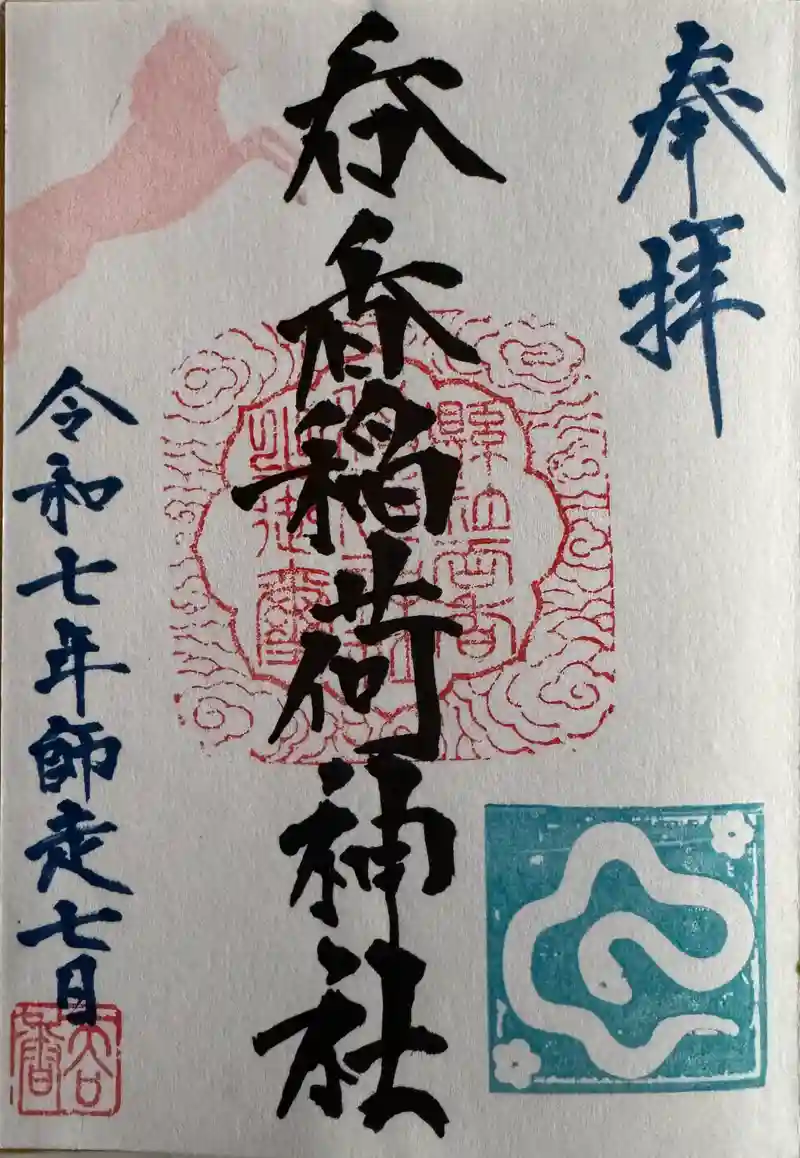 奉拝
呑香稲荷神社
縣社呑香
令和七年師走七日